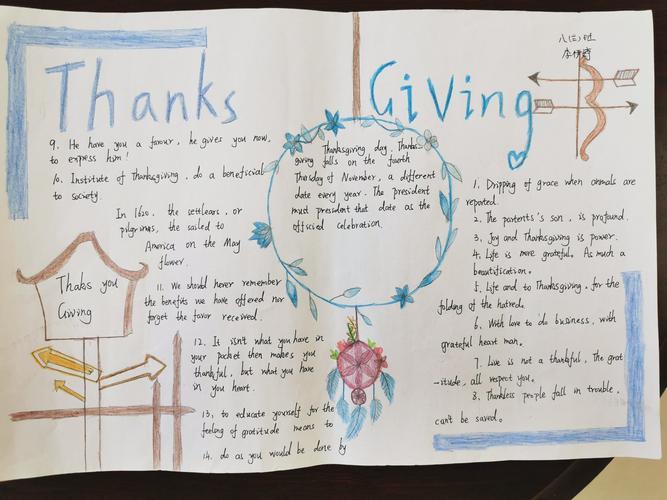 Thanks
Giving
八(三)班
9. He have you a favour, he gives you now,
to express him!
10. Institute of Thanksgiving, do a beneficial
to society.
In 1620, the settlears, or
pilgrims, the sailed to
America on the May
flower.
Thaks you
Giving
11. We should never remember
the benefits we have offered nor
forget the favor received.
12. It isn't what you have in
your pocket then makes you
thankful, but what you have
in you heart.
13. to educate yourself for the
feeling of gratitude means to
14. do as you would be done by
Thanksgiving day. Thanks-
giving falls on the fourth
Thursday of November, a different
date every year. The president
must president that date as the
official celebration.
1. Dripping of grace when animals are
reported.
2. The parents's son, is profound.
3. Joy and Thanksgiving is power.
4. Life is more grateful. As much a
beautification.
5. Life and to Thanksgiving, for the
folding of the hatred.
6. With love to do business, with
grateful heart man.
7. Live is not a thankful, The grat
-itude, all respect you.
8. Thankless people fall in trouble,
can't be saved.